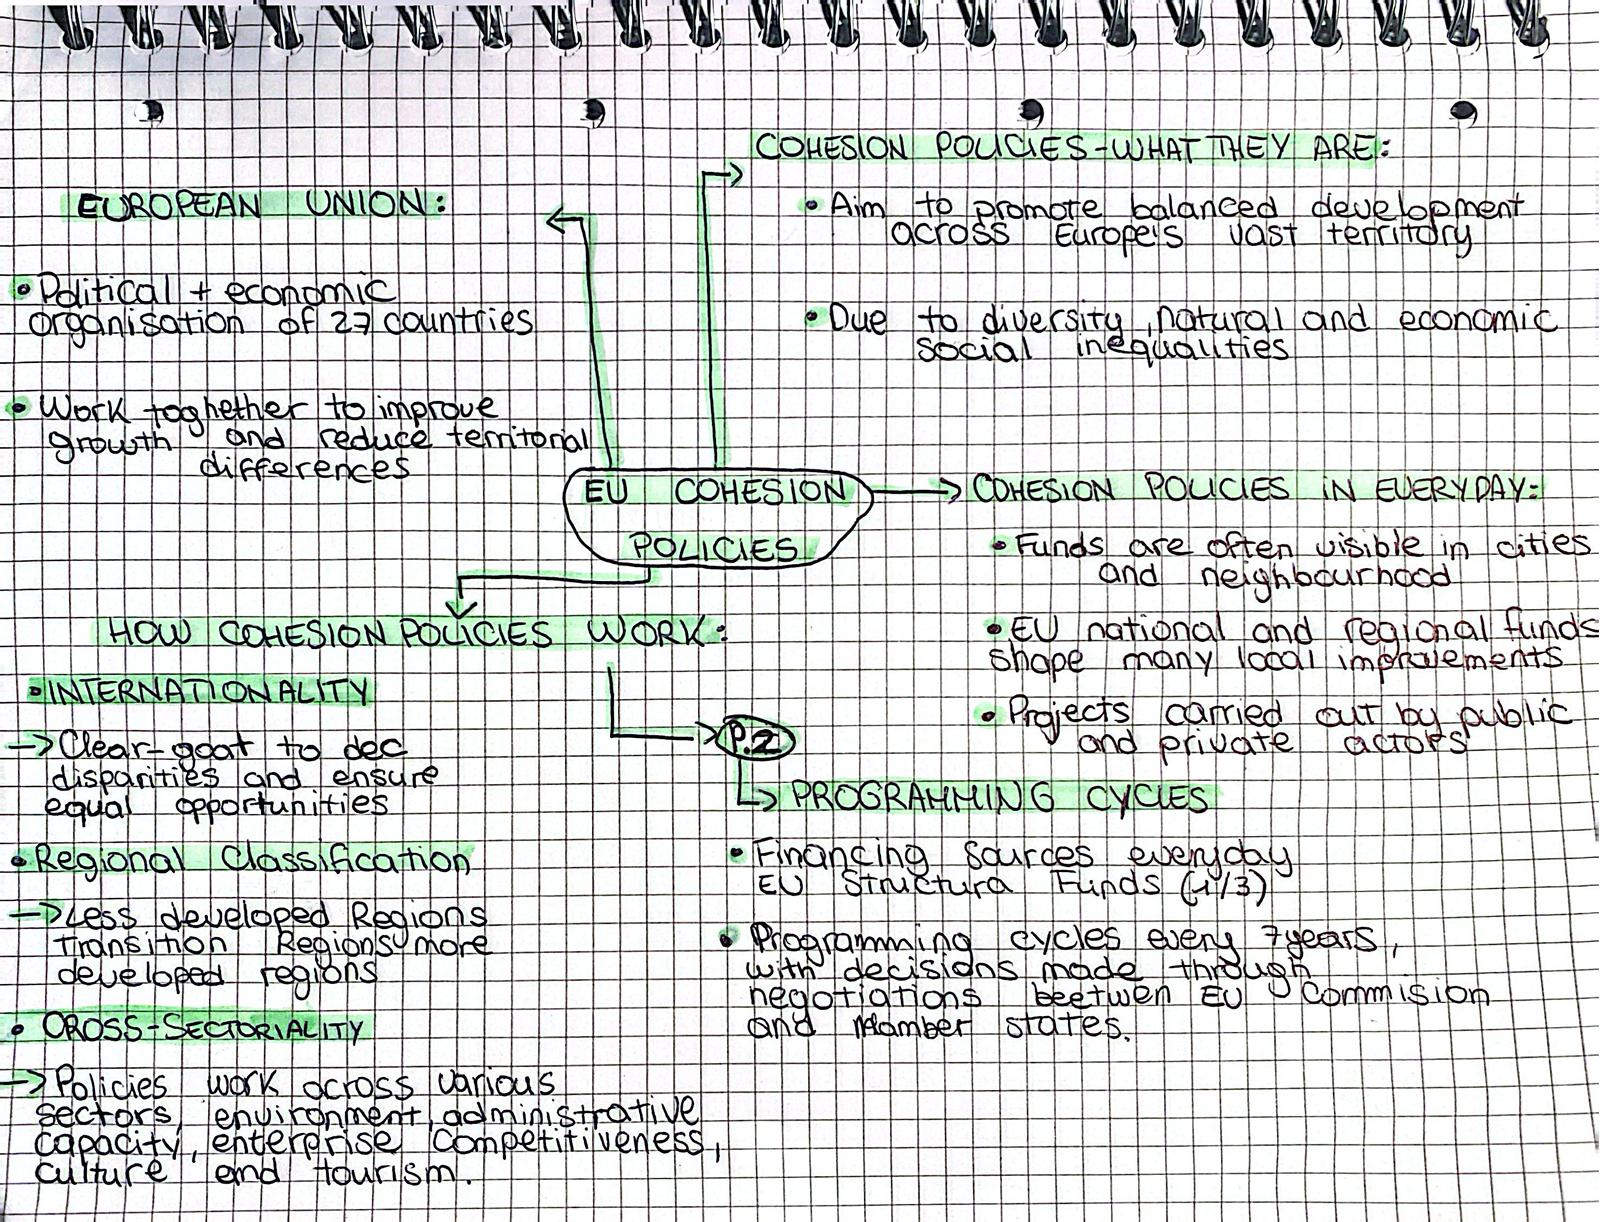 COHESION POLICIES-WHAT THEY ARE:
• Aim to promote balanced development
across Europe's vast territory
• Due to diversity, natural and economic
social inequalities
EUROPEAN UNION:
• Political + economic
organisation of 27 countries
• Work toghether to improve
growth and reduce territorial
differences
EU COHESION
POLICIES
COHESION POLICIES iN EVERYDAY:
• Funds are often visible in cities
and neighbourhood
• EU national and regional funds
shape many local improvements
• Projects carried out by public
and private actors
HOW COHESION POLICIES WORK:
• INTERNATIONALITY
→ Clear-goat to dec
disparities and ensure
equal opportunities
• Regional Classification
→ Less developed Regions
transition Regions more
developed regions
• CROSS-SECTORIALITY
→ Policies work across various
sectors, environment, administrative
capacity, enterprise competitiveness,
culture and tourism.
P.2
PROGRAMMING CYCLES
• Financing sources everyday
EU Structura Funds (1/3)
• Programming cycles every 7years,
with decisions made through
negotiations beetwen EU Commision
and Mamber states.